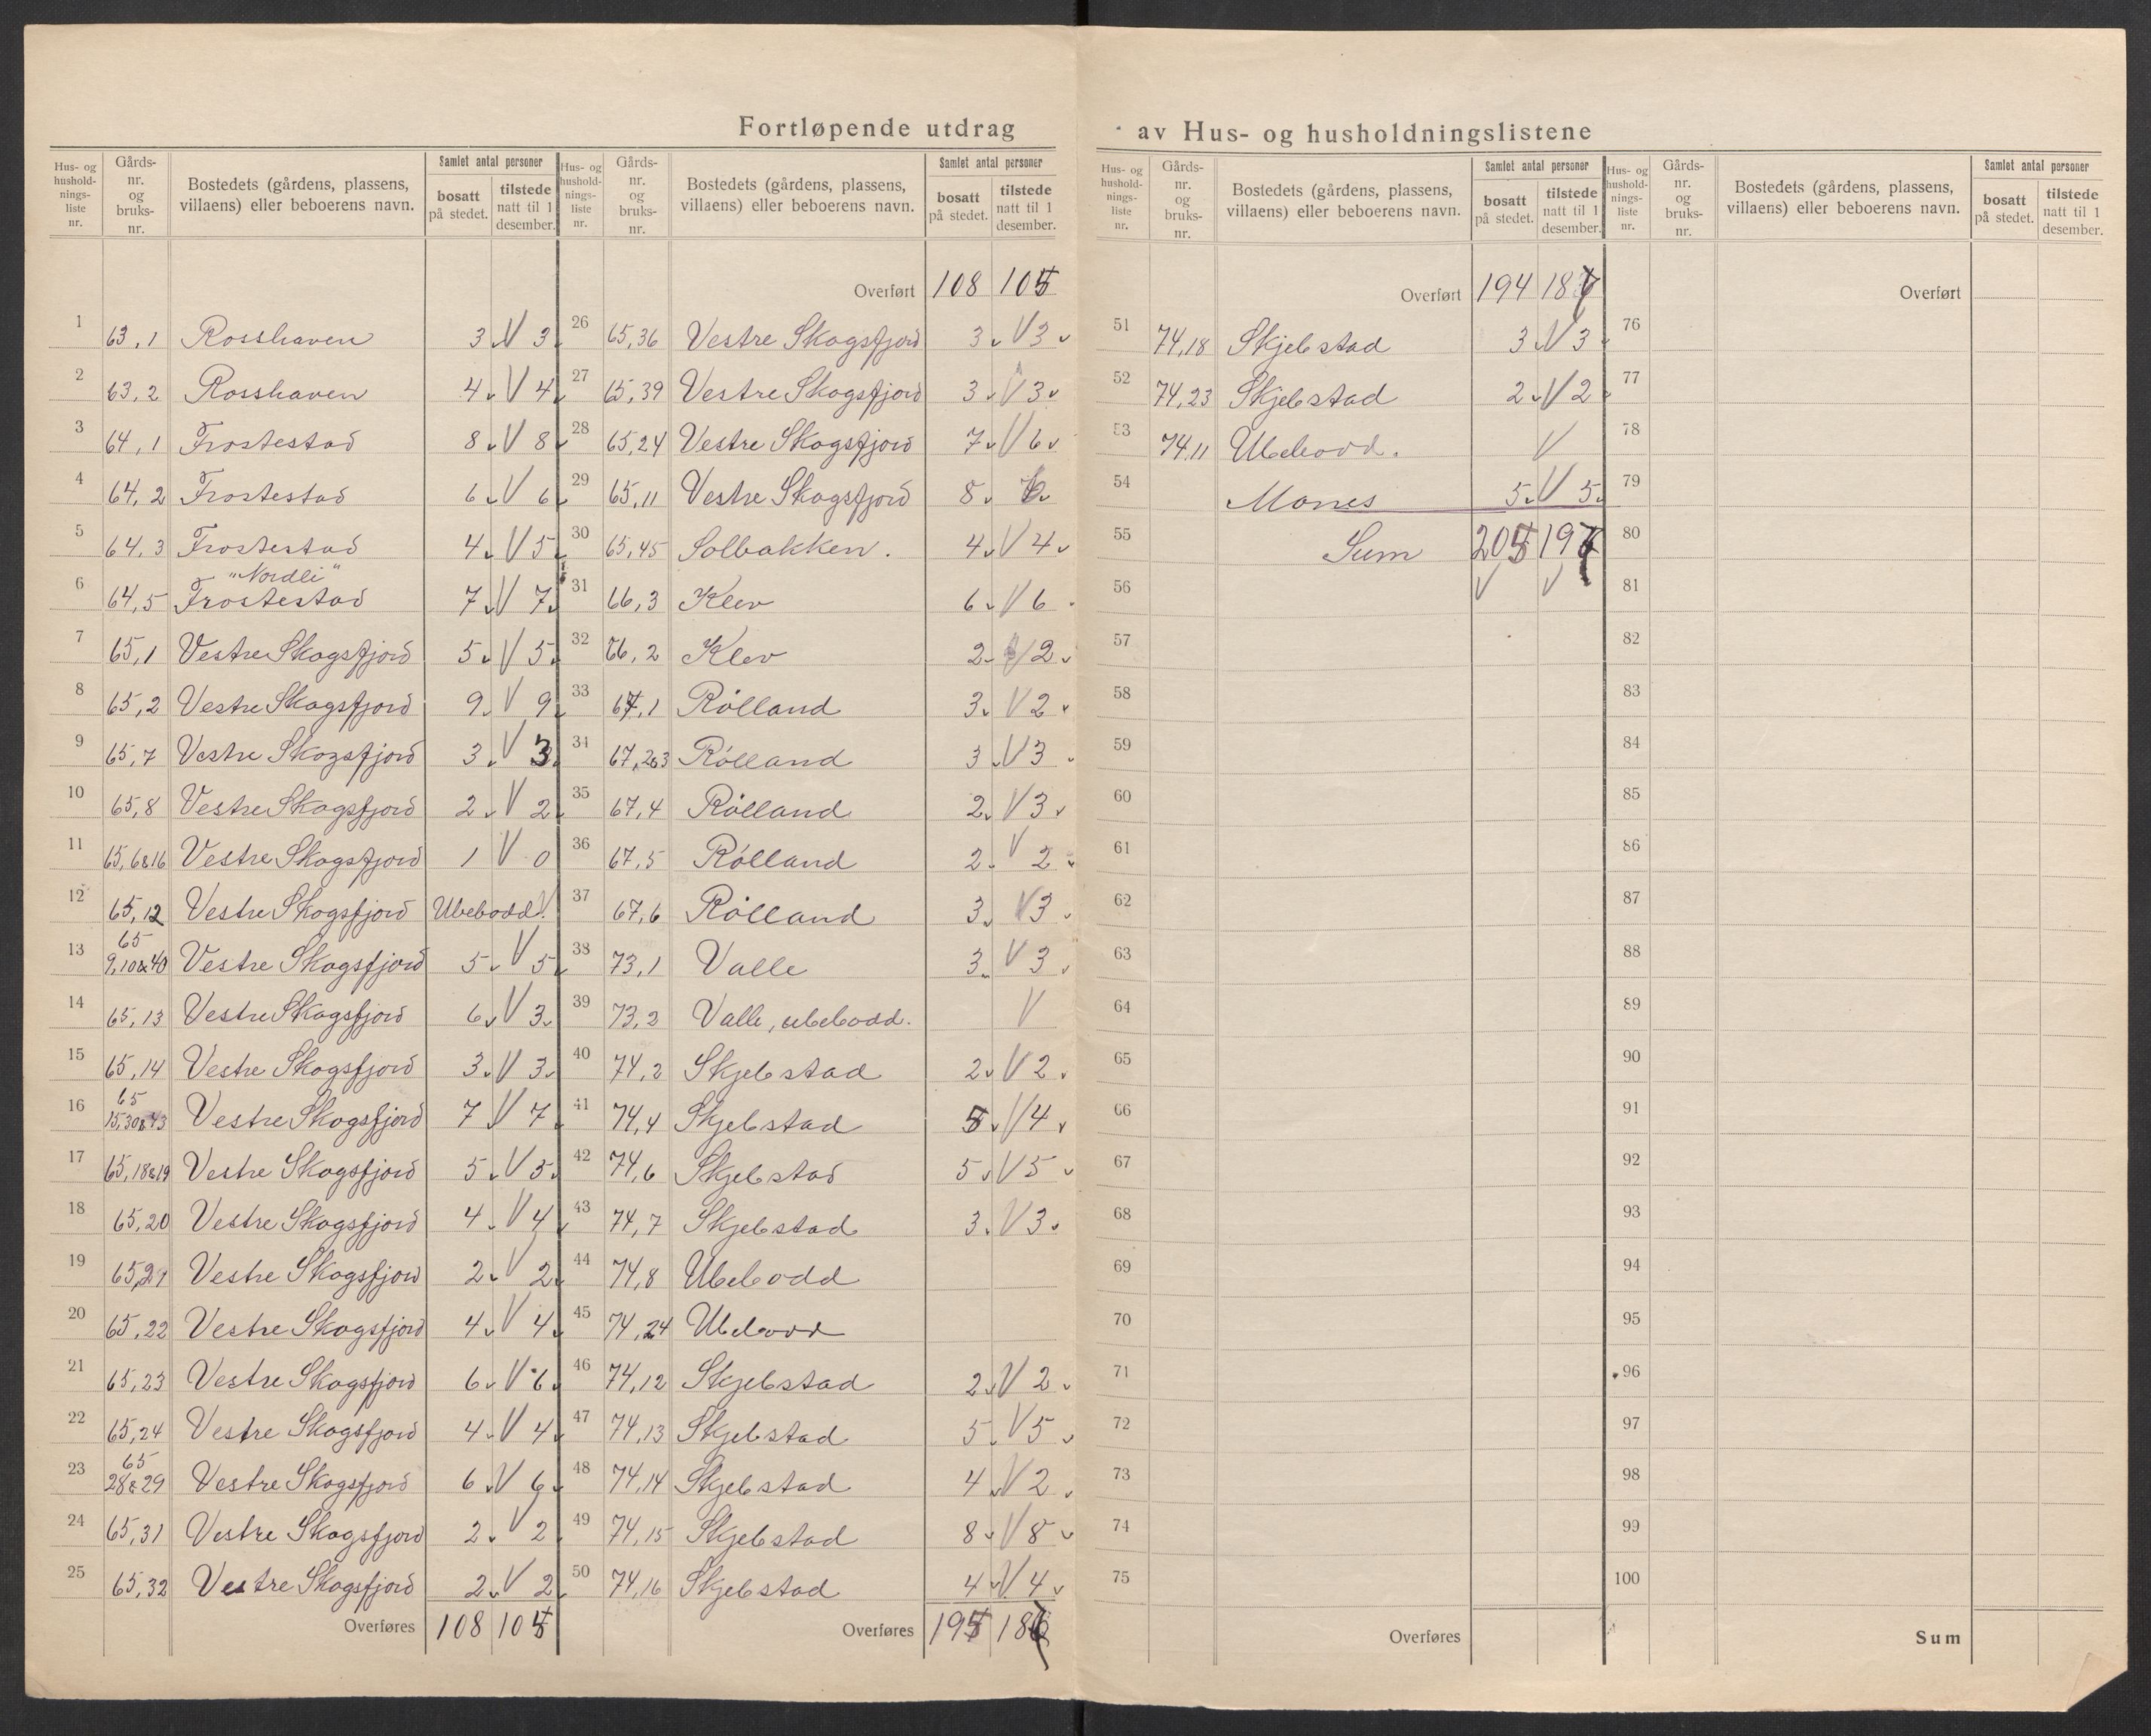 Fortløpende utdrag av Hus- og husholdningslistene
Hus- og husholdnings-liste nr. | Gårds-nr. og bruks-nr. | Bostedets (gårdens, plassens, villaens) eller beboerens navn. | Samlet antal personer | bosatt på stedet. | tilstede natt til 1 desember.
1 63,1 Rosshaven 3 V 3
2 63,2 Rosshaven 4 V 4
3 64,1 Frostestad 8 V 8
4 64,2 Frostestad 6 V 6
5 64,3 Frostestad 4 V 5
"Nordli"
6 64,5 Frostestad 7 V 7
7 65,1 Vestre Skogsfjord 5 V 5
8 65,2 Vestre Skogsfjord 9 V 9
9 65,7 Vestre Skogsfjord 3 V 3
10 65,8 Vestre Skogsfjord 2 V 2
11 65,6&16 Vestre Skogsfjord 1 V 0
12 65,12 Vestre Skogsfjord Ubebodd. V
13 65 9,10&40 Vestre Skogsfjord 5 V 5
14 65,13 Vestre Skogsfjord 6 V 3
15 65,14 Vestre Skogsfjord 3 V 3
16 65 15,30&43 Vestre Skogsfjord 7 V 7
17 65,18&19 Vestre Skogsfjord 5 V 5
18 65,20 Vestre Skogsfjord 4 V 4
19 65,21 Vestre Skogsfjord 2 V 2
20 65,22 Vestre Skogsfjord 4 V 4
21 65,23 Vestre Skogsfjord 6 V 6
22 65,24 Vestre Skogsfjord 4 V 4
23 65 28&29 Vestre Skogsfjord 6 V 6
24 65,31 Vestre Skogsfjord 2 V 2
25 65,32 Vestre Skogsfjord 2 V 2
Overføres 108
Hus- og husholdnings-liste nr. | Gårds-nr. og bruks-nr. | Bostedets (gårdens, plassens, villaens) eller beboerens navn. | Samlet antal personer | bosatt på stedet. | tilstede natt til 1 desember.
Overført 108
26 65,36 Vestre Skogsfjord 3 V 3
27 65,39 Vestre Skogsfjord 3 V 3
28 65,24 Vestre Skogsfjord 7 V 6
29 65,11 Vestre Skogsfjord 8
30 65,45 Solbakken. 4 V 4
31 66,3 Klev 6 V 6
32 66,2 Klev 2 V 2
33 67,1 Rölland 3 V 2
34 67,2&3 Rölland 3 V 3
35 67,4 Rölland 2 V 3
36 67,5 Rölland 2 V 2
37 67,6 Rölland 3 V 3
38 73,1 Valle 3 V 3
39 73,2 Valle, ubebodd. V
40 74,2 Skjebstad 2 V 2
41 74,4 Skjebstad 5 V 4
42 74,6 Skjebstad 5 V 5
43 74,7 Skjebstad 3 V 3
44 74,8 Ubebodd
45 74,24 Ubebodd
46 74,12 Skjebstad 2 V 2
47 74,13 Skjebstad 5 V 5
48 74,14 Skjebstad 4 V 2
49 74,15 Skjebstad 8 V 8
50 74,16 Skjebstad 4 V 4
Overføres
Hus- og husholdnings-liste nr. | Gårds-nr. og bruks-nr. | Bostedets (gårdens, plassens, villaens) eller beboerens navn. | Samlet antal personer | bosatt på stedet. | tilstede natt til 1 desember.
Overført 194
51 74,18 Skjebstad 3 V 3
52 74,23 Skjebstad 2 V 2
53 74,11 Ubebodd. V
54 Mones 5 V 5
55 Sum
56 V V
57
58
59
60
61
62
63
64
65
66
67
68
69
70
71
72
73
74
75
Overføres
Hus- og husholdnings-liste nr. | Gårds-nr. og bruks-nr. | Bostedets (gårdens, plassens, villaens) eller beboerens navn. | Samlet antal personer | bosatt på stedet. | tilstede natt til 1 desember.
Overført
76
77
78
79
80
81
82
83
84
85
86
87
88
89
90
91
92
93
94
95
96
97
98
99
100
Sum